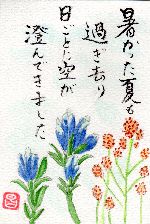 暑かった夏も
過ぎ去り
日ごとに空が
澄んできました